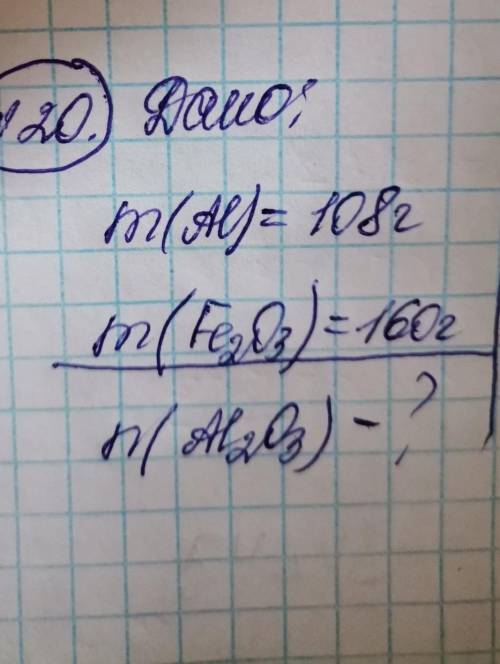 120. Дано:
m(Al) = 108г
m(Fe₂O₃) = 160г
n(Al₂O₃) - ?